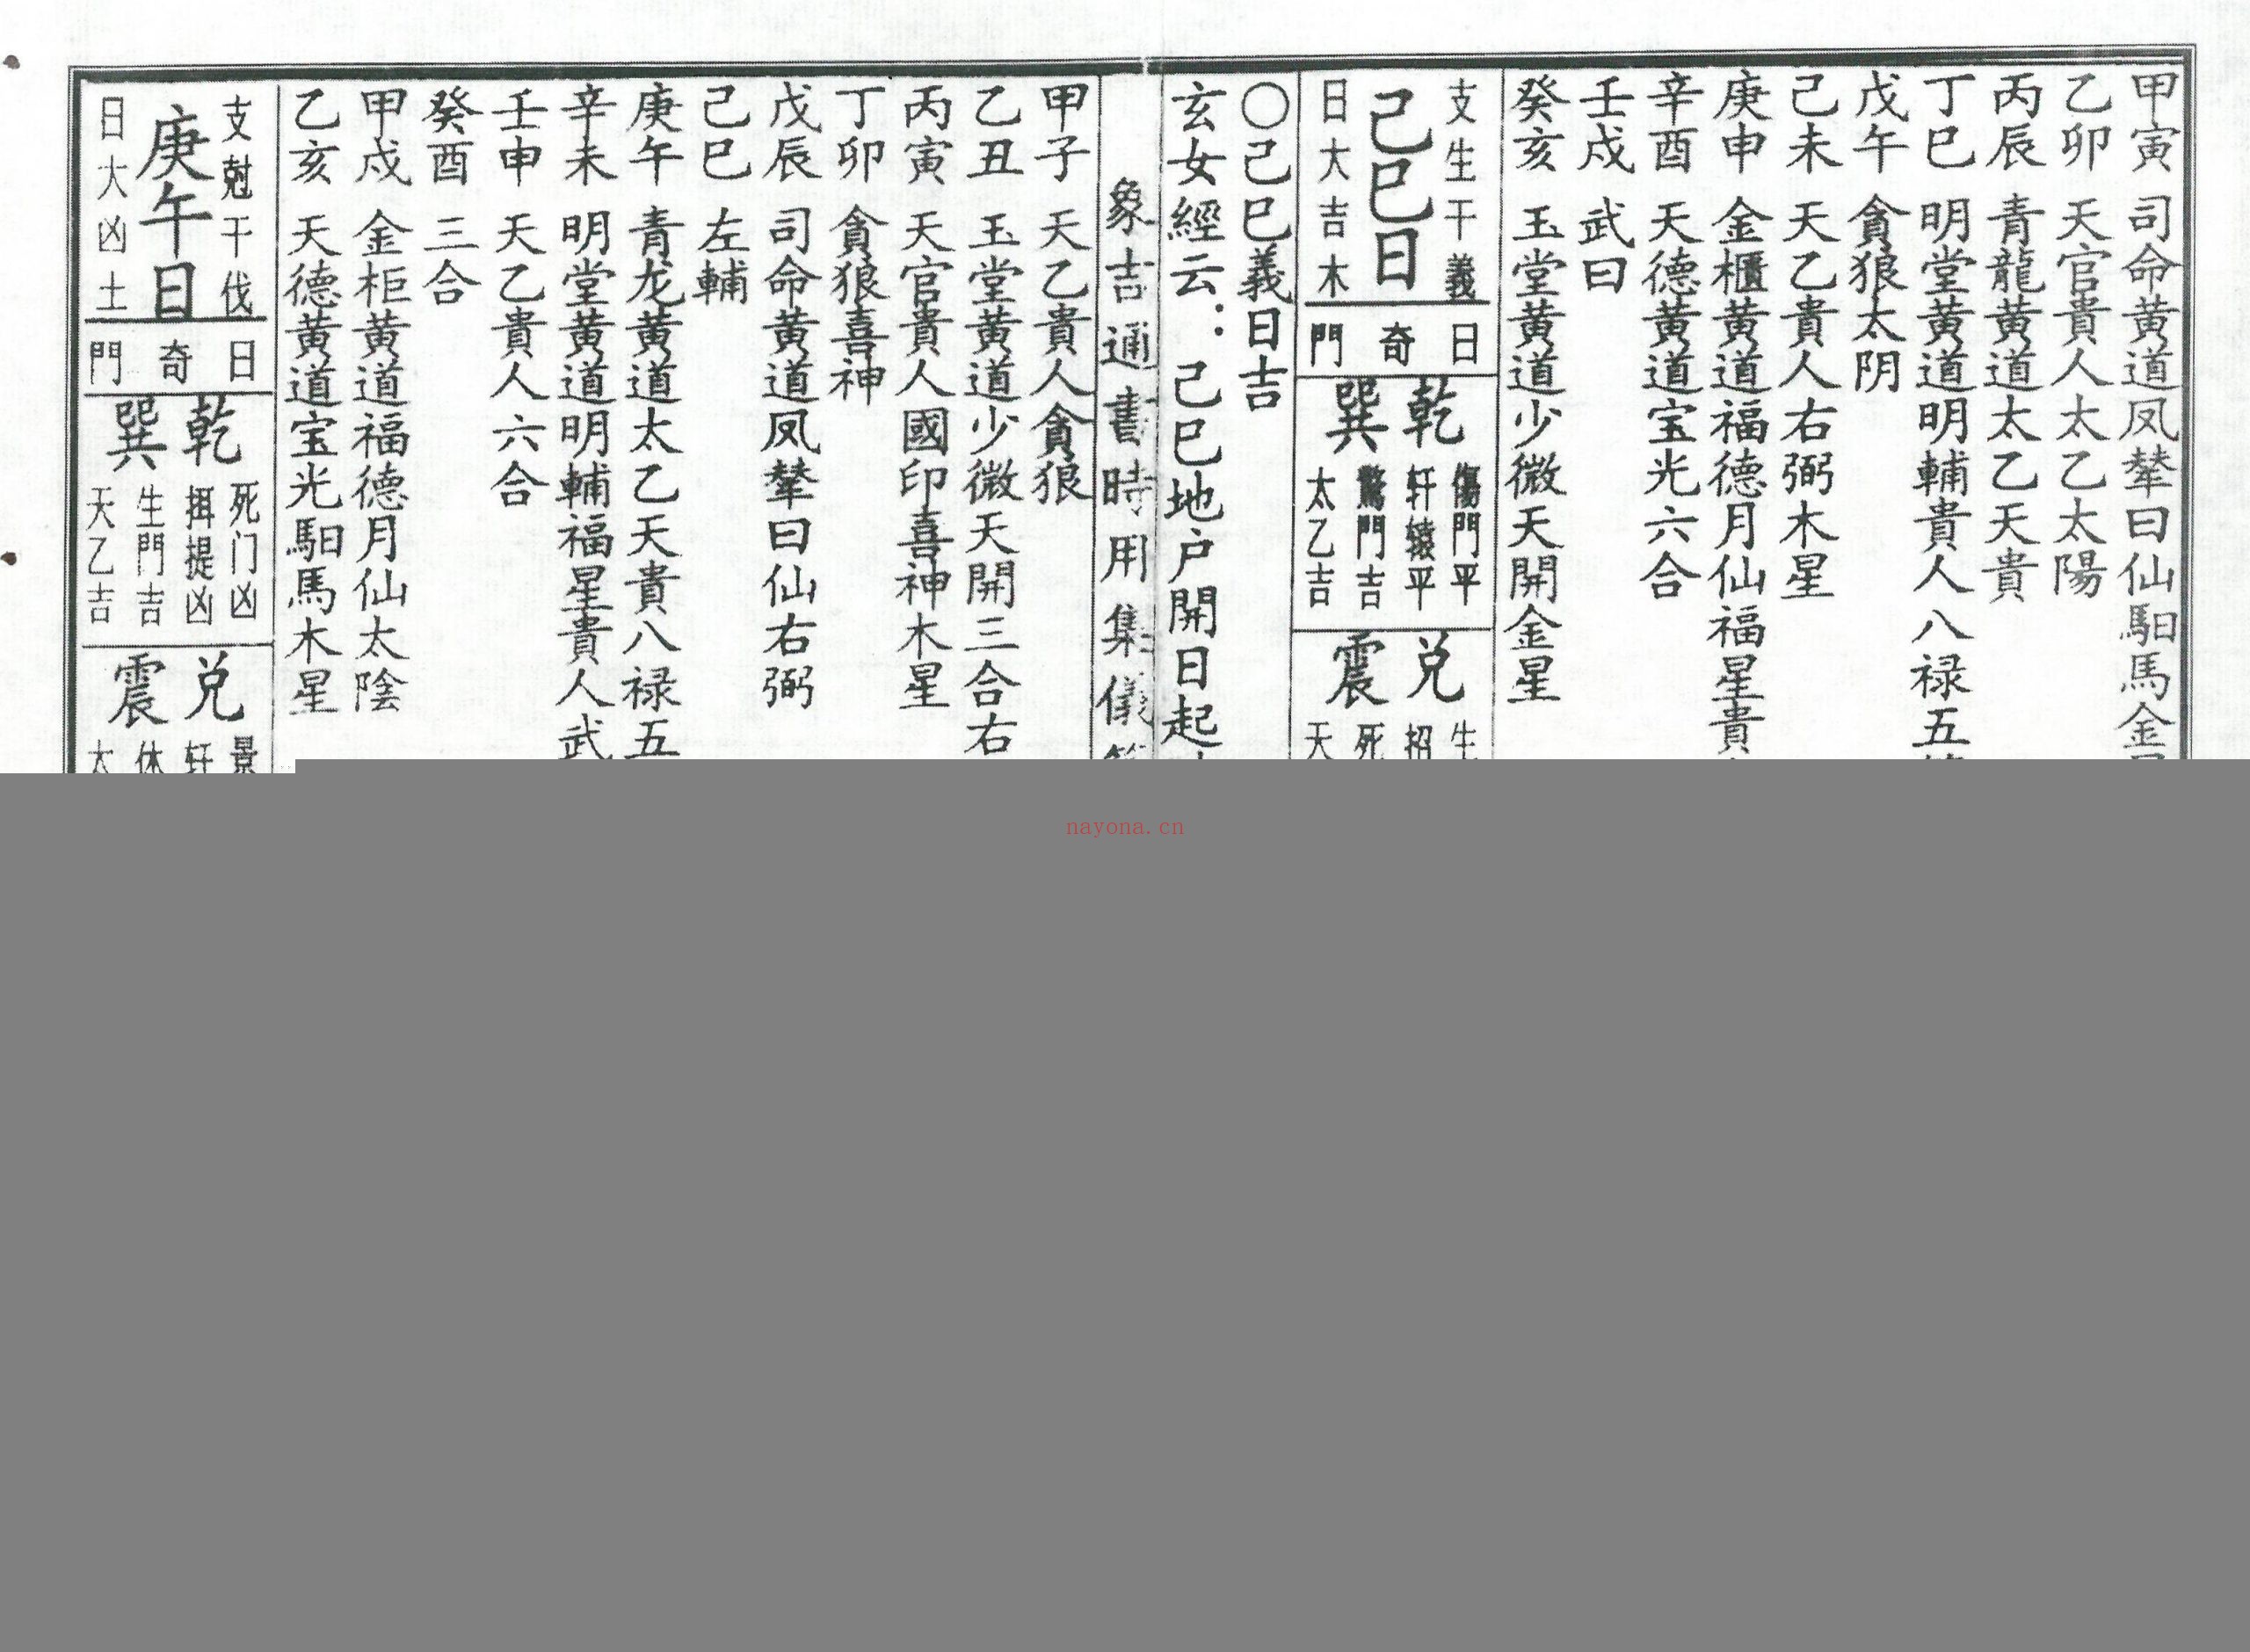 甲寅 司命黄道凤辇日仙馹馬金
乙卯 天官貴人太乙太陽
丙辰 青龍黄道太乙天貴
丁巳 明堂黄道明輔貴人八禄五
戊午 貪狼太阴
己未 天乙貴人右弼木星
庚申 金櫃黄道福德月仙福星貴
辛酉 天德黄道宝光六合
壬戌 武曰
癸亥 玉堂黄道少微天開金星
支生干義
己巳日
日大吉木
日奇門
乾巽
傷門平
轩辕平
驚門吉
太乙吉
兑震
生
招
死
天
〇己巳義日吉
玄女經云：己巳地户開日起
象吉通書時用集儀
甲子 天乙貴人貪狼
乙丑 玉堂黄道少微天開三合右
丙寅 天官貴人國印喜神木星
丁卯 貪狼喜神
戊辰 司命黄道凤辇曰仙右弼
己巳 左輔
庚午 青龙黄道太乙天貴八禄五
辛未 明堂黄道明輔福星貴人武
壬申 天乙貴人六合
癸酉 三合
甲戌 金柜黄道福德月仙太陰
乙亥 天德黄道宝光馹馬木星
支尅干伐
庚午日
日大凶土
日奇門
乾巽
死门凶
挕提凶
生門吉
天乙吉
兑震
景
轩
休
太
nayona.cn